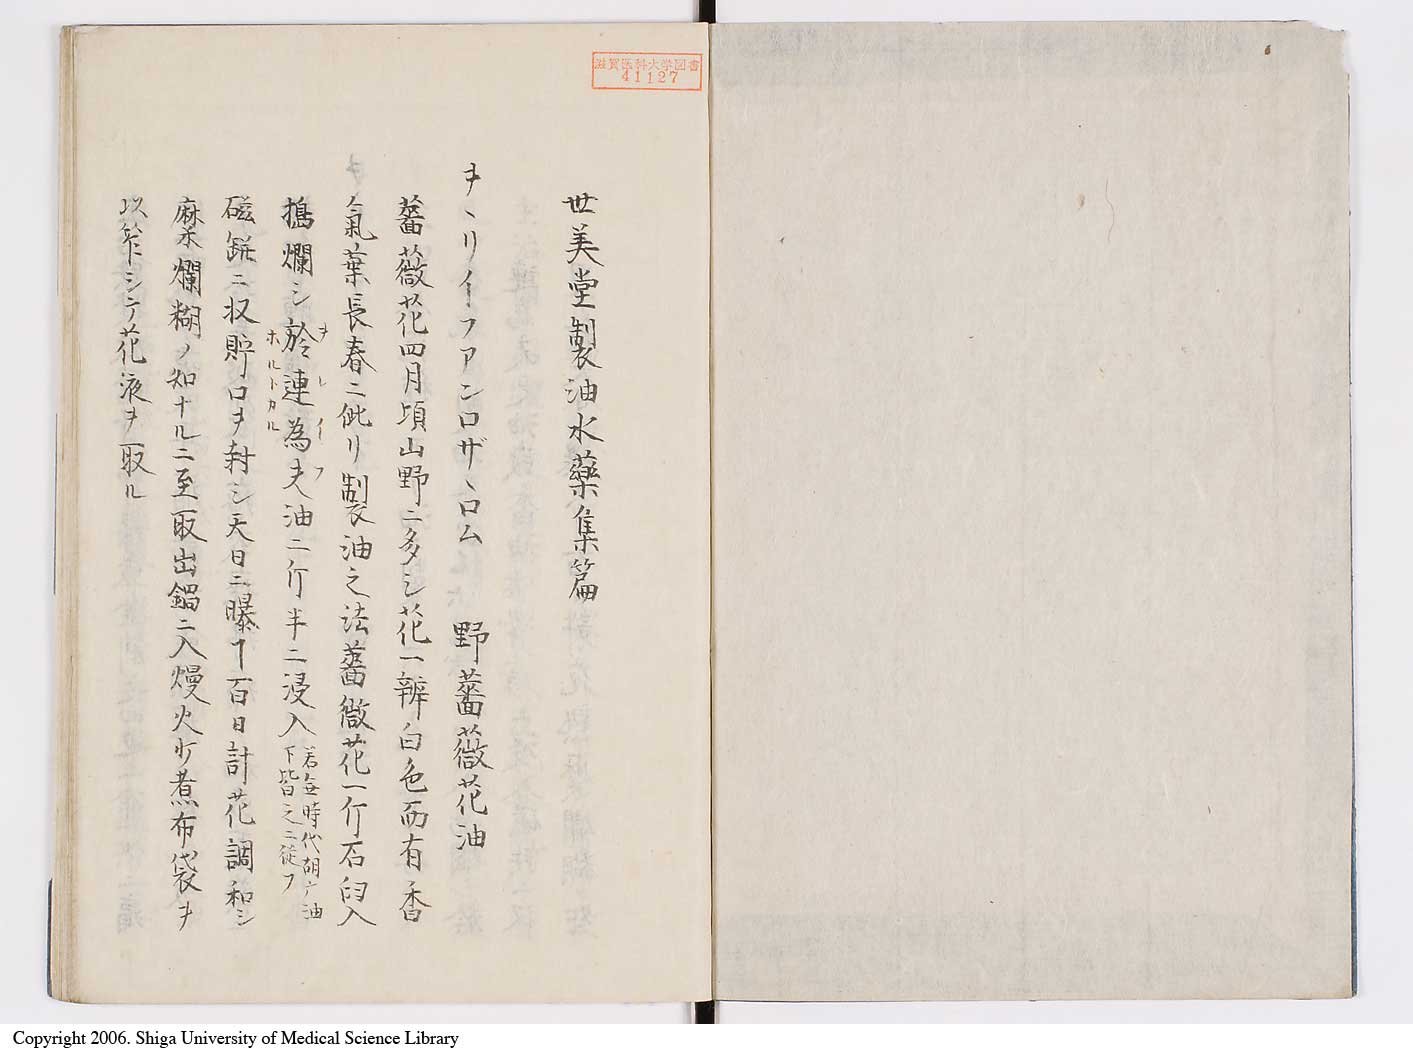 滋賀医科大学図書
41127
世美堂製油水藥集篇
ヲヽリイフアンロザヽロム 野薔薇花油
薔薇花四月頃山野ニ多シ花一辨白色而有香
氣葉長春ニ仳リ製油之法薔薇花一斤石臼入
搗爛シ於連為夫油二斤半ニ浸入若無時代胡广油下皆之ニ従フ
ヲレイフ
ホルトカル
磁缾ニ収貯口ヲ封シ天日ニ曝ヿ百日計花調和シ
麋爛糊ノ如ナルニ至取出鍋ニ入熳火ニ煮布袋ヲ
以笮シテ花液ヲ取ル
Copyright 2006. Shiga University of Medical Science Library